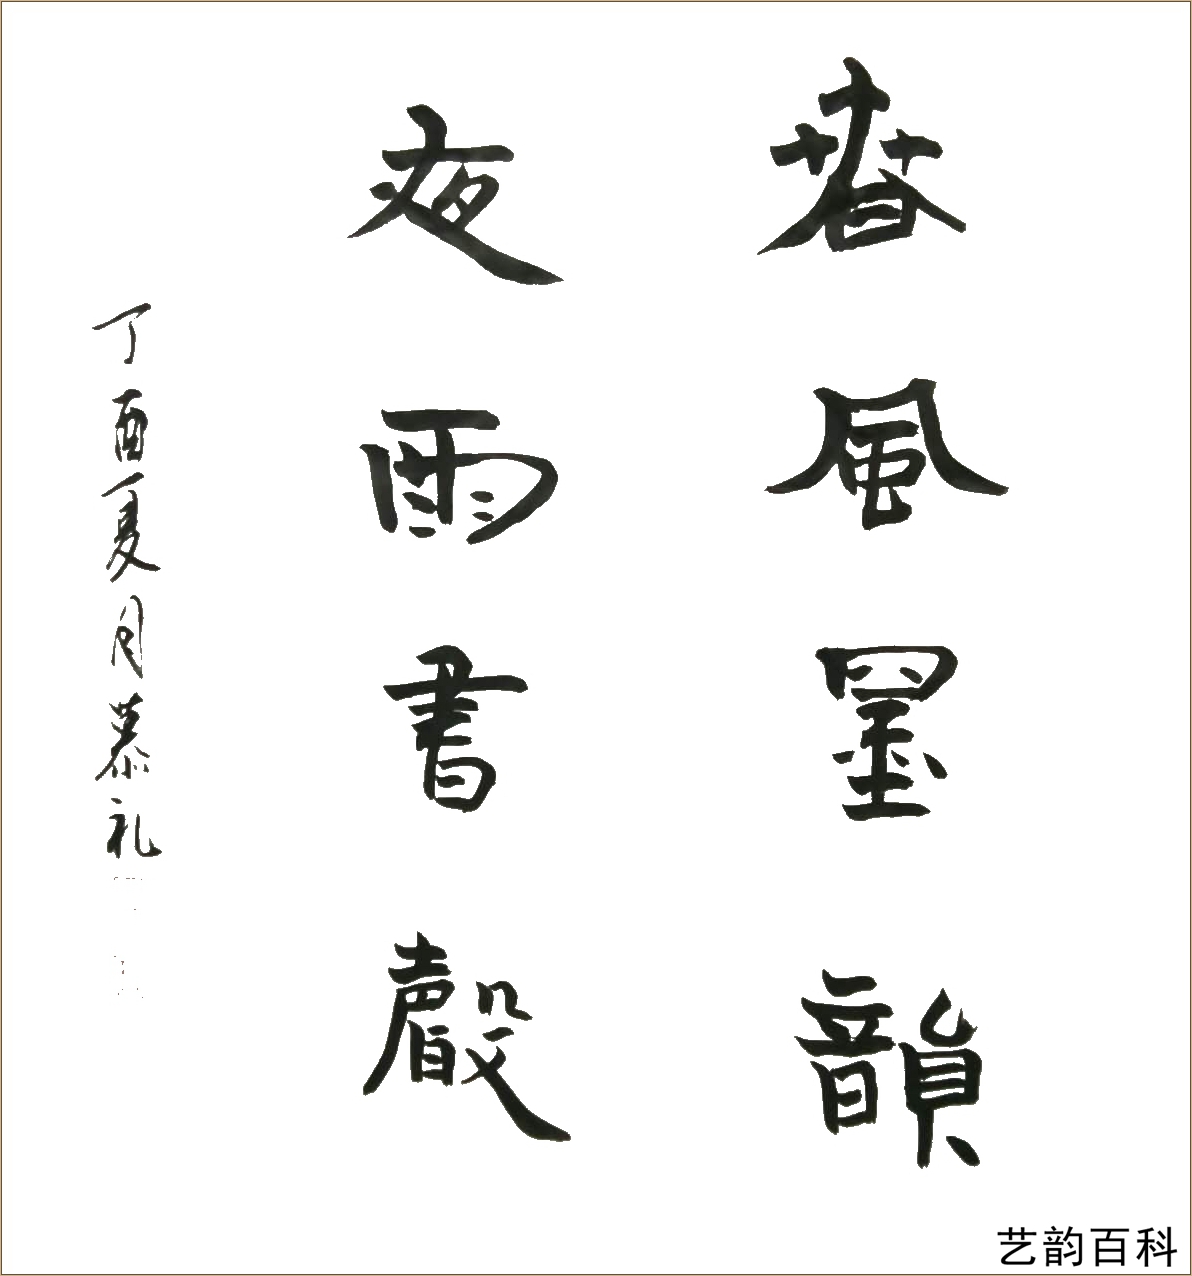 春風墨韻
夜雨書聲
丁酉夏月慕礼
艺韵百科